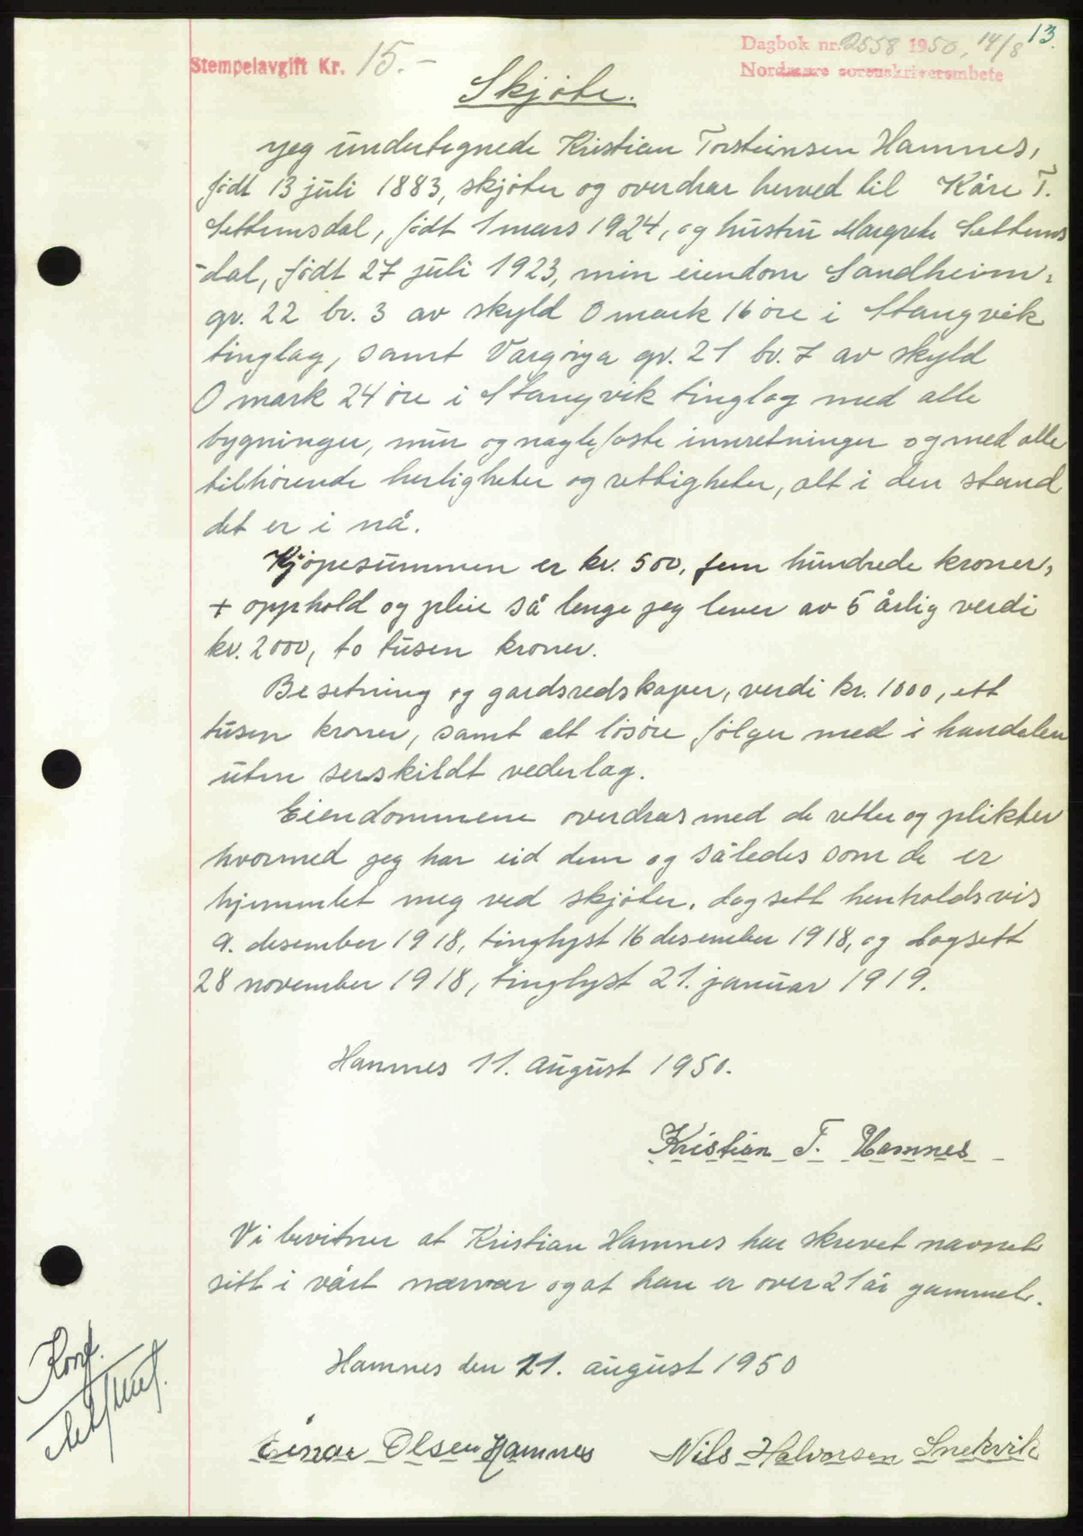 13.
Dagbok nr. 2558 1950, 14/8
Stempelavgift Kr. 15.-
Nordmøre sorenskriverembete
Skjøte.
Jeg undertegnede Kristian Torsteinsen Hamnes,
født 13 juli 1883, skjøter og overdrar herved til Kåre T.
Settemsdal, født 1 mars 1924, og hustru Margrete Settems
-dal, født 27 juli 1923, min eiendom Sandheim,
gr. 22 br. 3 av skyld 0 mark 16 øre i Stangvik
tinglag, samt Vargøya gr. 21 br. 7 av skyld
0 mark 24 øre i Stangvik tinglag med alle
bygninger, mur og naglefaste innretninger og med alle
tilhørende herligheter og rettigheter, alt i den stand
det er i nå.
Kjøpesummen er kr. 500, fem hundrede kroner,
+ opphold og pleie så lenge jeg lever av 5 årlig verdi
kr. 2000, to tusen kroner.
Besetning og gardsredskaper, verdi kr. 1000, ett
tusen kroner, samt alt løsøre følger med i handelen
uten serskildt vederlag.
Eiendommene overdras med de retter og plikter
hvormed jeg har eid dem og således som de er
hjemmlet meg ved skjøter, dagsett henholdsvis
9. desember 1918, tinglyst 16 desember 1918, og dagsett
28 november 1918, tinglyst 21. januar 1919.
Hamnes 11. august 1950.
Kristian T. Hamnes
Vi bevitner at Kristian Hamnes har skrevet navnet
sitt i vårt nærvær og at han er over 21 år gammel.
Hamnes den 11. august 1950
Einar Olsen Hamnes Nils Halvorsen Snekvik
Konf.